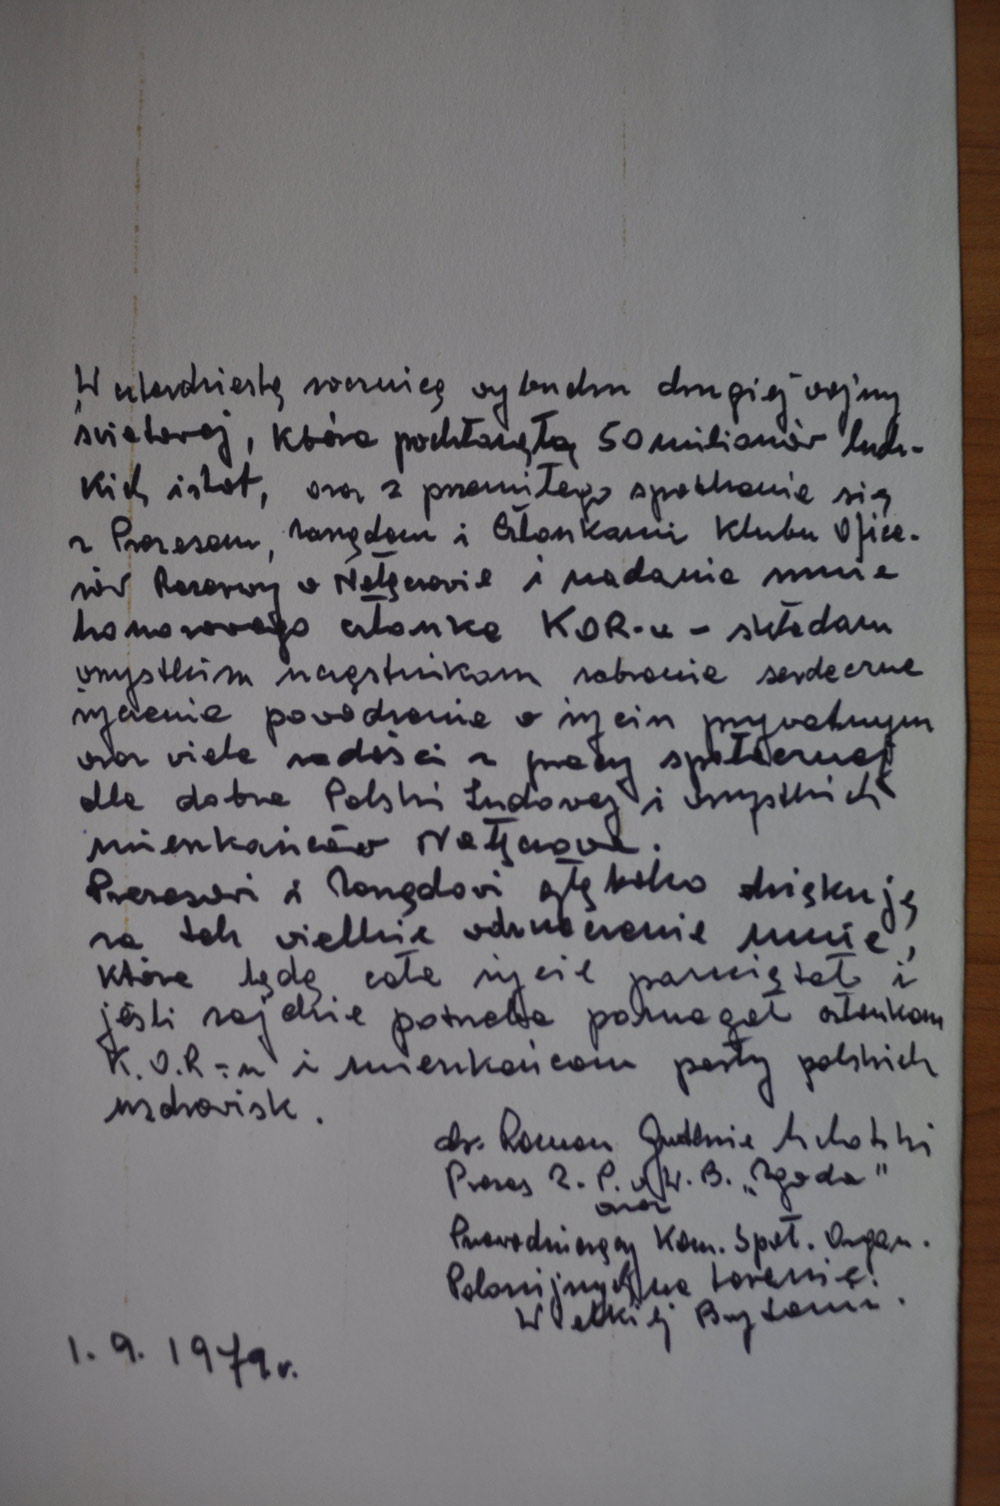 W czterdziestą rocznicę wybuchu drugiej wojny
światowej, która pochłonęła 50 milionów ludz-
kich istot, oraz z przemiłego spotkania się
z Prezesem, Zarządem i Członkami Klubu Ofice-
rów Rezerwy w Nałęczowie i nadania mnie
honorowego członka KOR-u - składam
wszystkim uczestnikom zebrania serdeczne
życzenia powodzenia w życiu prywatnym
oraz wiele radości z pracy społecznej
dla dobra Polski Ludowej i wszystkich
mieszkańców Nałęczowa.
Prezesowi i Zarządowi głęboko dziękuję
za tak wielkie odznaczenie mnie,
które będę całe życie pamiętał i
jeśli zajdzie potrzeba pomagał członkom
K.O.R-u i mieszkańcom perły polskich
uzdrowisk.
dr. Roman
Prezes Z.P. w W.B. „Zgoda"
oraz
Przewodniczący Kom. Społ. Organ.
Polonijnych na terenie
Wielkiej Brytanii.
1.9.1979r.